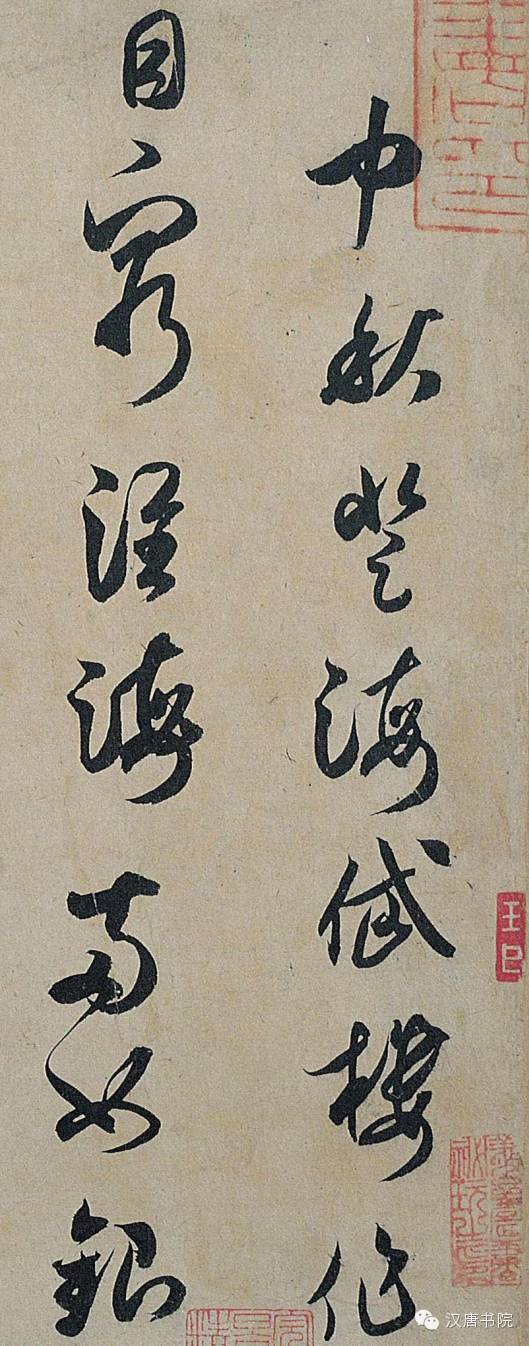 中秋登海岱楼作
目穷淮海两如银
王巳
汉唐书院